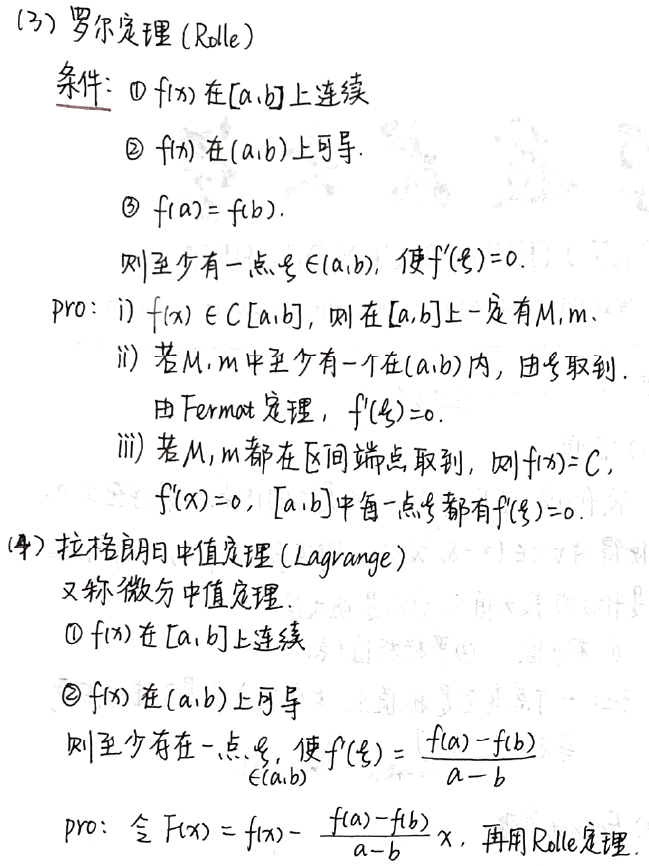 (3) 罗尔定理 (Rolle)
条件: ① f(x) 在 [a,b] 上连续
② f(x) 在 (a,b) 上可导.
③ f(a) = f(b).
则至少有一点 ξ ∈(a,b), 使 f'(ξ)=0.
pro: i) f(x) ∈ C [a,b], 则在 [a,b] 上一定有 M, m.
ii) 若 M, m 中至少有一个在 (a,b) 内, 由 ξ 取到.
由 Fermat 定理, f'(ξ)=0.
iii) 若 M, m 都在区间端点取到, 则 f(x)=C,
f'(x)=0, [a,b] 中每一点 ξ 都有 f'(ξ)=0.
(4) 拉格朗日中值定理 (Lagrange)
又称微分中值定理.
① f(x) 在 [a,b] 上连续
② f(x) 在 (a,b) 上可导
则至少存在一点 ξ ∈(a,b), 使 f'(ξ) = \frac{f(a)-f(b)}{a-b}
pro: 令 F(x) = f(x) - \frac{f(a)-f(b)}{a-b} x, 再用 Rolle 定理.